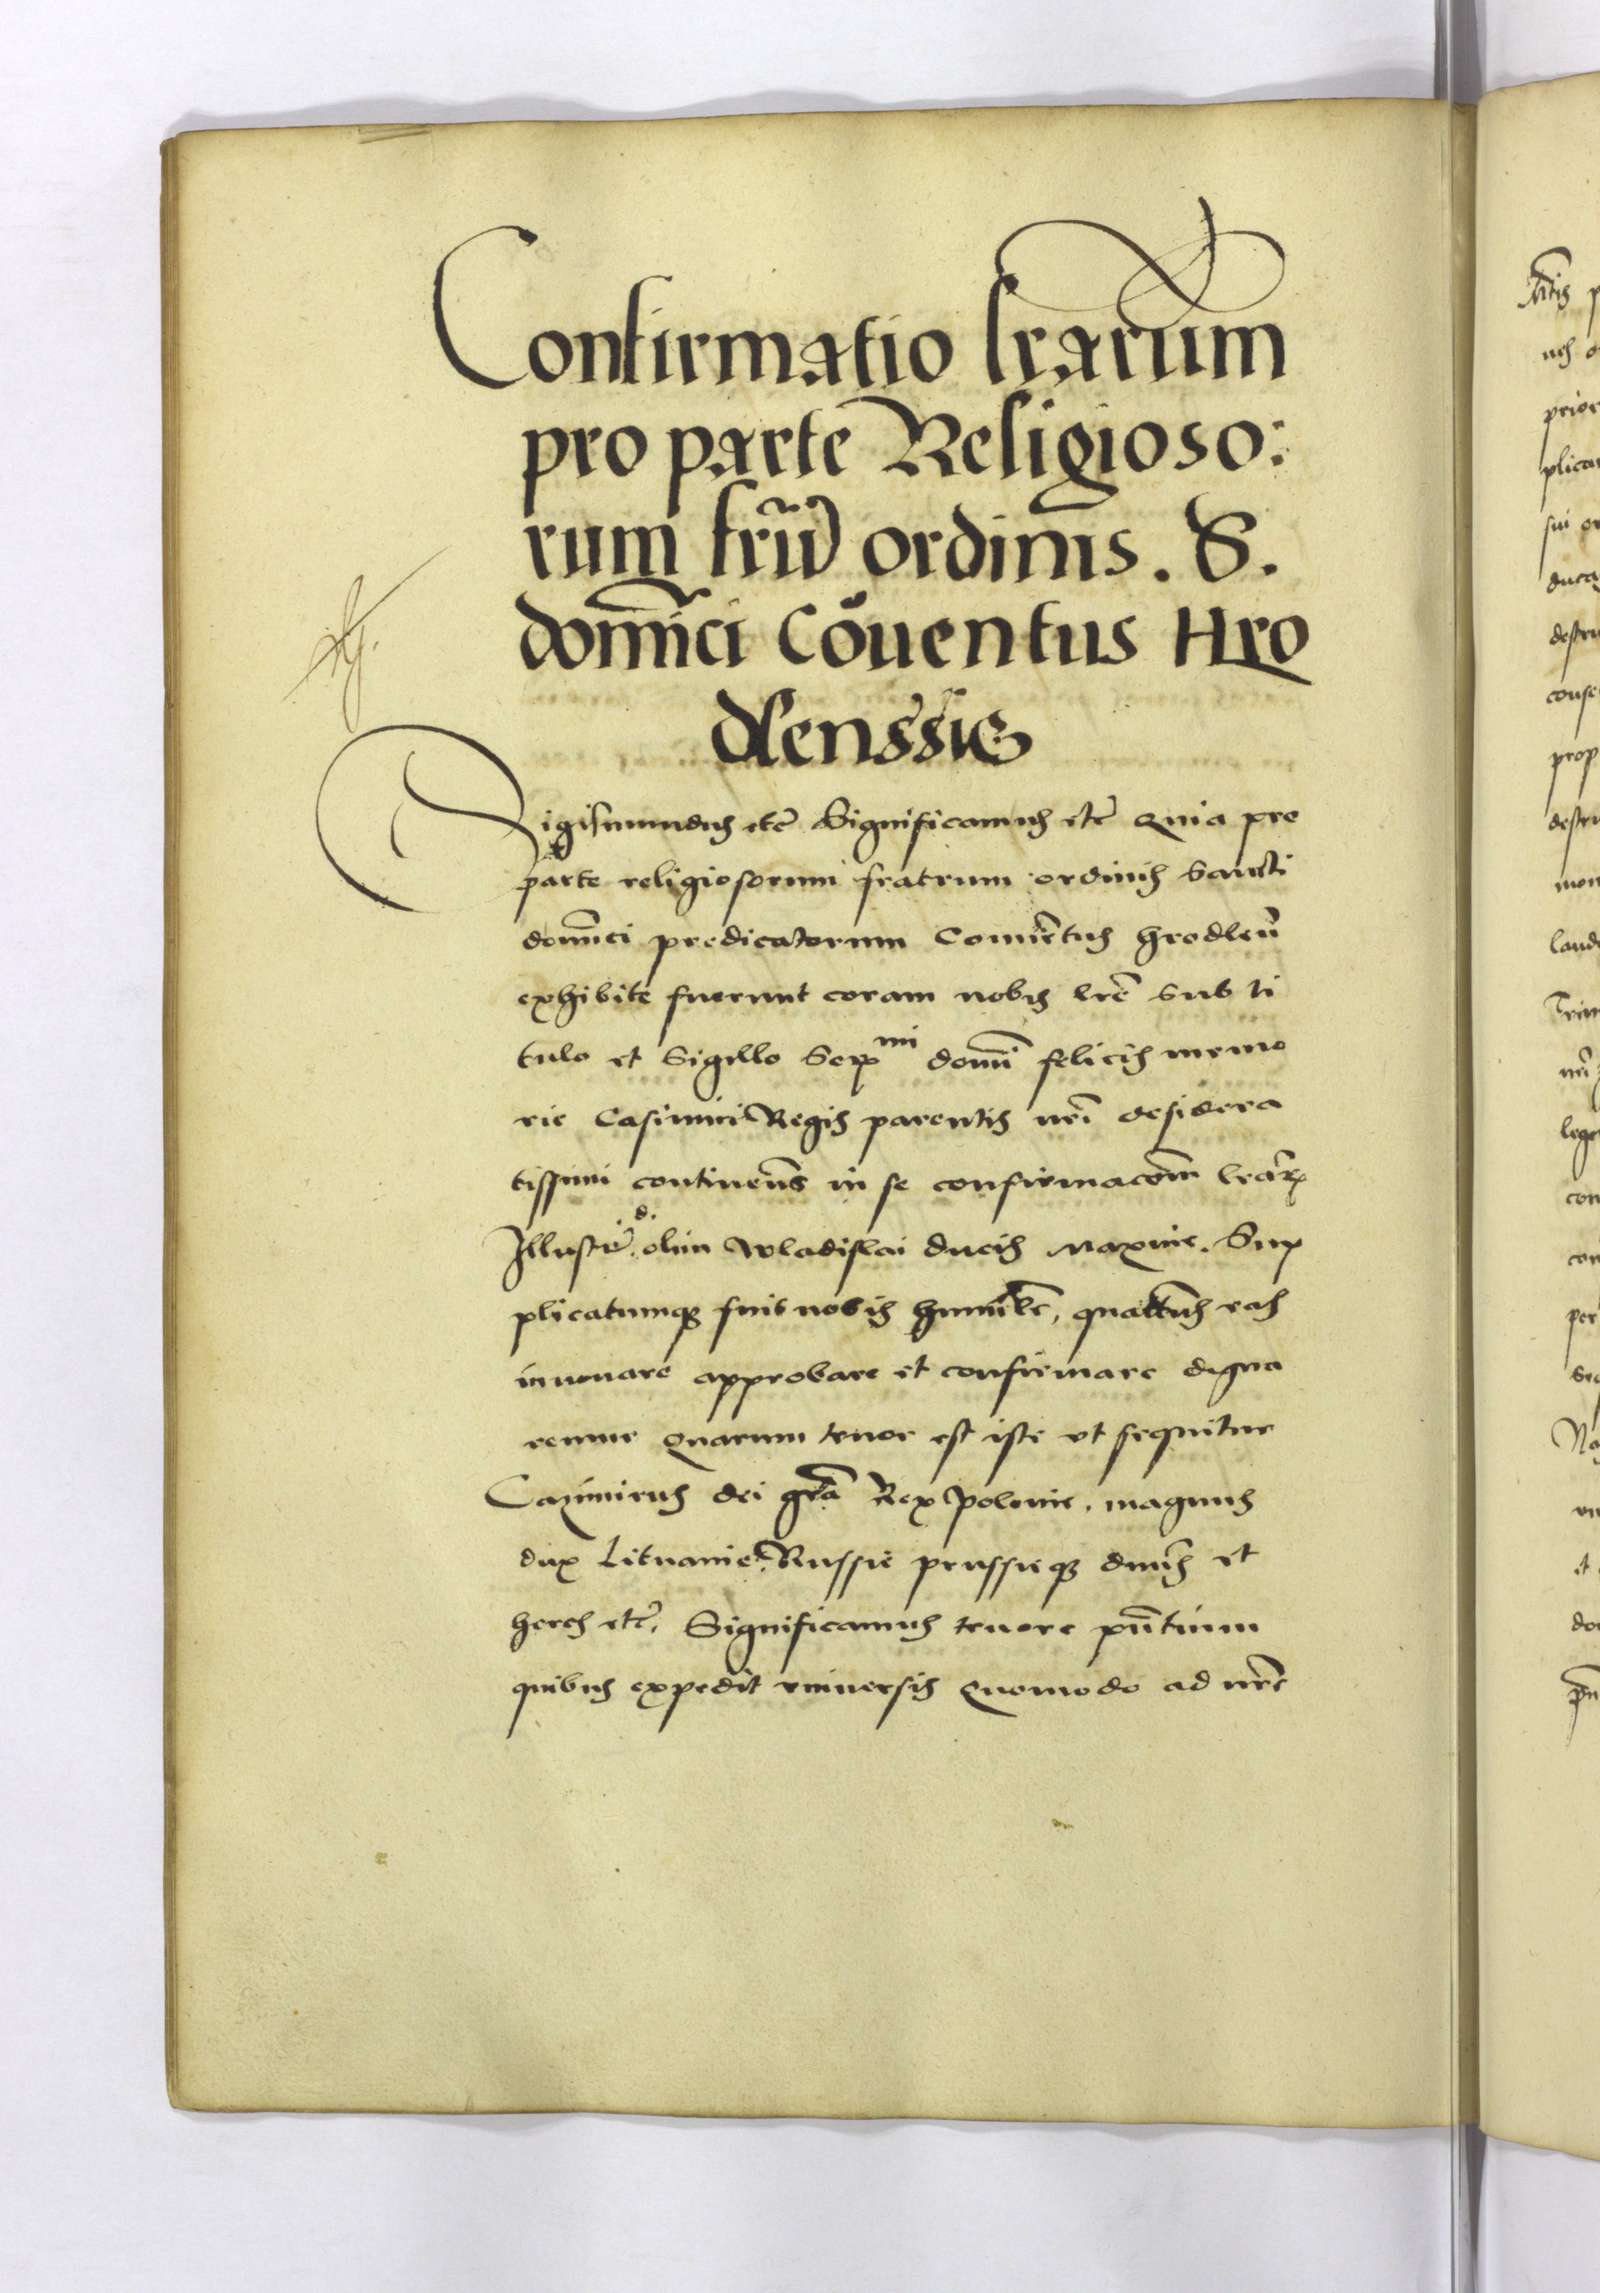 Confirmatio lrarum
pro parte Religioso:
rum frũ ordinis . S.
dominici Cõuentus Hro
dlenssis
Sigismundus etc̃ Significamus etc̃ Quia pro
parte religiosorum fratrum ordinis Sancti
dom̃ci predicatorum Conuẽtus hrodleñ
exhibite fuerunt coram nobis lrẽ sub ti
tulo et Sigillo Ser mi domi felicis memo
rie Casimiri Regis parentis nrĩ desidera
tissimi continens̃ in se confirmacõm lrãrꝝ
Illustr̃ d. olim Wladislai ducis Maxouie. Sup
plicatumqꝫ fuit nobis humilr̃, quatẽnus eas
innouare approbare et confirmare digna
remur Quarum tenor est iste vt sequitur
Cazimirus dei grã Rex polonie, magnus
dux Lituanie, Russie prussieqꝫ dñus et
heres etc̃. Significamus tenore pñtium
quibus expedit vniuersis Quomodo ad nrẽ